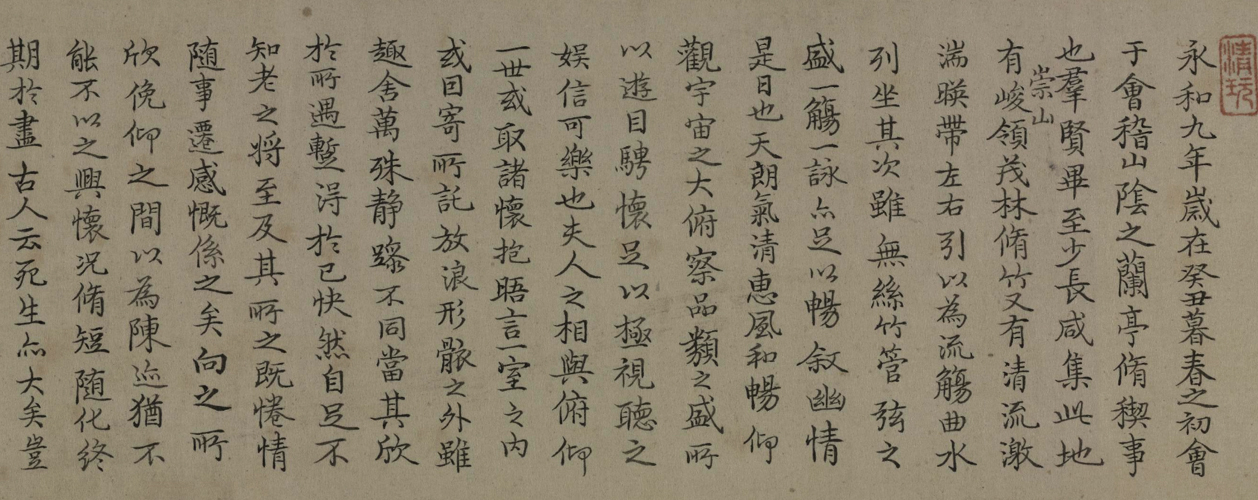 清玩
永和九年歲在癸丑暮春之初會
于會稽山陰之蘭亭脩稧事
也羣賢畢至少長咸集此地
崇山
有峻領茂林脩竹又有清流激
湍暎帶左右引以為流觴曲水
列坐其次雖無絲竹管弦之
盛一觴一詠亦足以暢叙幽情
是日也天朗氣清惠風和暢仰
觀宇宙之大俯察品類之盛所
以遊目騁懷足以極視聽之
娛信可樂也夫人之相與俯仰
一世或取諸懷抱晤言一室之内
或因寄所託放浪形骸之外雖
趣舍萬殊静躁不同當其欣
於所遇蹔得於己快然自足不
知老之将至及其所之既惓情
随事遷感慨係之矣向之所
欣俛仰之間以為陳迹猶不
能不以之興懷況脩短随化終
期於盡古人云死生亦大矣豈